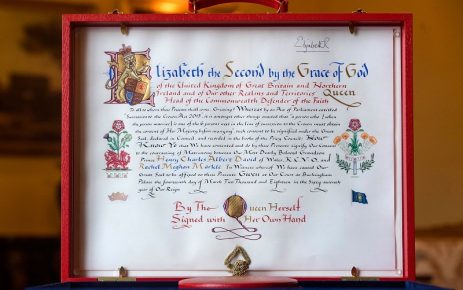 Elizabeth R
Elizabeth the Second by the Grace of God
of the United Kingdom of Great Britain and Northern
Ireland and of Our other Realms and Territories Queen
Head of the Commonwealth Defender of the Faith
To all to whom these Presents shall come Greeting! Whereas by an Act of Parliament entitled
Succession to the Crown Act 2013, it is amongst other things enacted that "a person who
the consent of Her Majesty before marrying, such consent to be signified under the Great
Seal declared in Council and recorded in the books of the Privy Council Now
Know Ye that We have consented and do by these Presents signify Our Consent
to the contracting of Matrimony between Our Most Dearly Beloved Grandson
Prince Henry Charles Albert David of Wales, K.C.V.O. and
Rachel Meghan Markle In Witness whereof We have caused Our
Great Seal to be affixed to these Presents Given at Our Court at Buckingham
Palace the fourteenth day of March Two Thousand and Eighteen in the Sixty seventh
year of Our Reign
By The Queen Herself
Signed with Her Own Hand